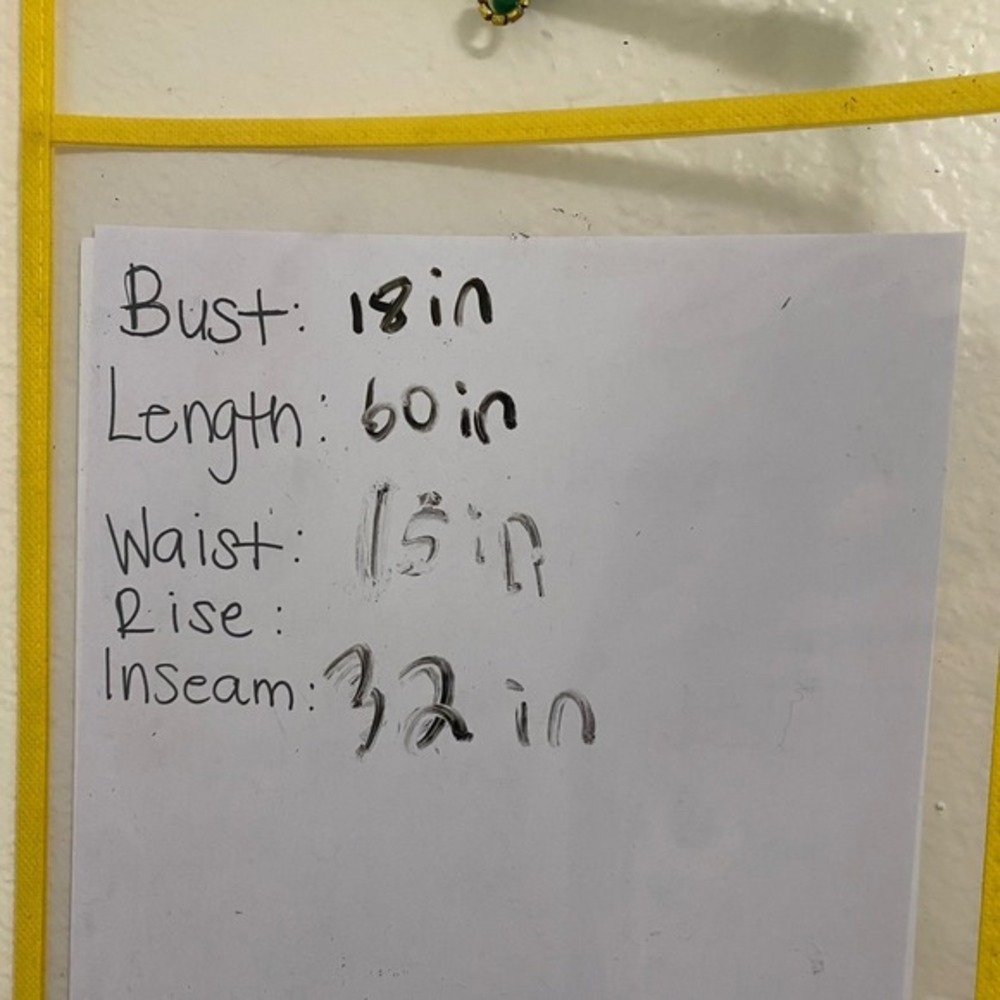 Bust: 18 in
Length: 60 in
Waist: 15 in
Rise:
Inseam: 32 in